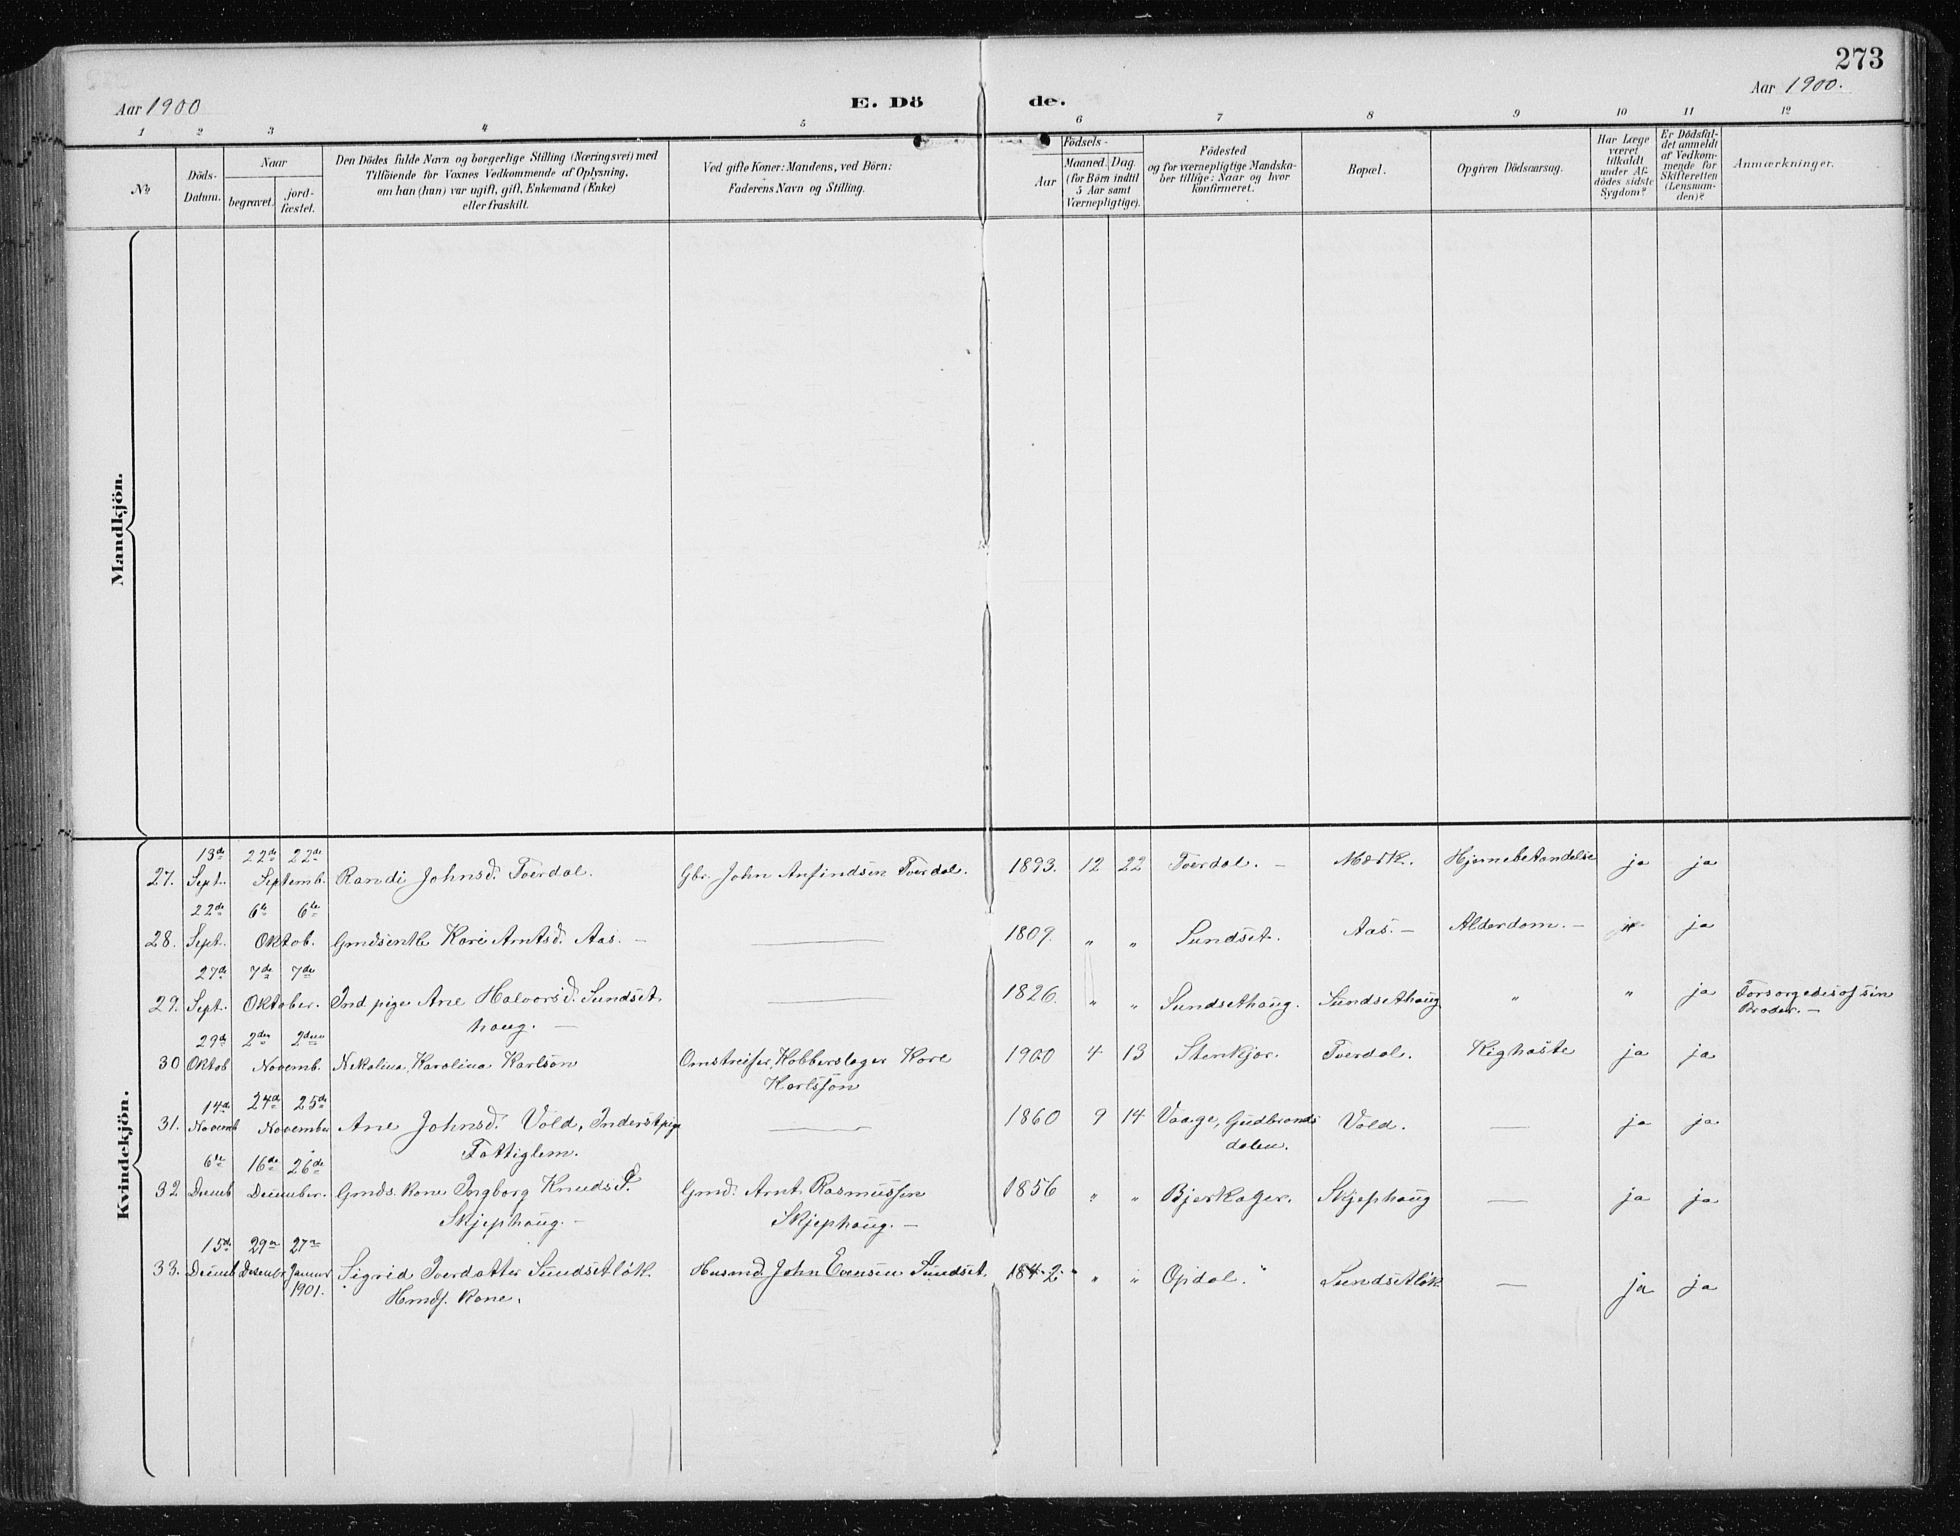 273
Aar 1900
E. Dö
de.
Aar 1900.
1 2 3 4 5 6 7 8 9 10 11 12
No
Döds-
Datum.
Naar
begravet.
jord-
fæstet.
Den Dödes fulde Navn og borgerlige Stilling (Næringsvei) med
Tilföiende for Voxnes Vedkommende af Oplysning,
om han (hun) var ugift, gift, Enkemand (Enke)
eller fraskilt.
Ved gifte Koner: Mandens, ved Börn:
Faderens Navn og Stilling.
Födsels-
Aar
Maaned. Dag.
(for Börn indtil
5 Aar samt
Værnepligtige).
Födested
og for værnepligtige Mandska-
ber tillige: Naar og hvor
konfirmeret.
Bopæl.
Opgiven Dödsaarsag.
Har Læge
været
tilkaldt
under Af-
dödes sidste
Sygdom?
Er Dödsfal-
det anmeldt
af Vedkom-
mende for
Skifteretten
(Lensman-
den)?
Anmærkninger.
Mandkjön.
Kvindekjön.
13de 22de 22de
27. Sept. Septemb. Randi Johnsd. Tverdal. Gbr. John Anfindsen Tverdal. 1893. 12 22 Tverdal. – Mærk. Hjernebetændelse ja ja
22de 6te 6te
28. Sept. Oktob. Gmdsenke Kari Arntsd. Aas. – — 1809. " " Sundset. Aas. – Alderdom. – ja
27de 7de 7de
29. Sept. Oktober. Ind pige Ane Halvorsd. Sundset — 1826. " " Sundsethaug. Sundsethaug " " ja Forsørgedes af sin
haug. – Broder. –
29de 2den 2den
30 Oktob Novemb. Nikolina, Karolina Karlson Omstreifer, Kobberslager Kore 1900 4 13 Stenkjær. Tverdal. Kighoste ja ja
Karlsson
14de 24de 25de
31. Novemb November Ane Johnsd. Vold, Inderstpige — 1860 9 14 Vaage, Gudbrands Vold. — ja ja
Fattiglem. dalen.
6te 16de 26de
32 Decemb December. Gmds. Kone Ingborg Knudsd. Gmd. Arnt Rasmussen 1856 " " Bjerkager. Skjephaug — ja ja
Skjephaug. – Skjephaug. –
15de 29de 27de
33. Decemb Desember Januar Sigrid Iverdatter Sundsetløk Husmd. John Evensen Sundset. 1842 " " Opdal. Sundsetløk — ja ja
1901. Hmds. Kone.